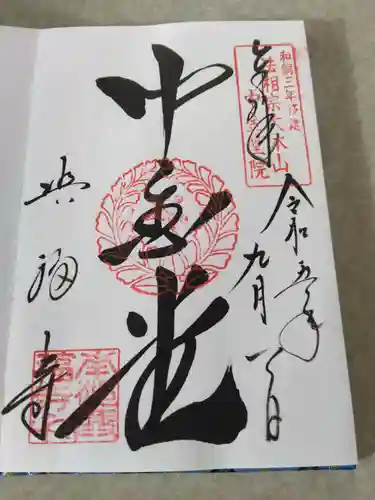 和銅三年
法相宗大本山
奉拝
令和五年
九月一日
中金堂
興福寺